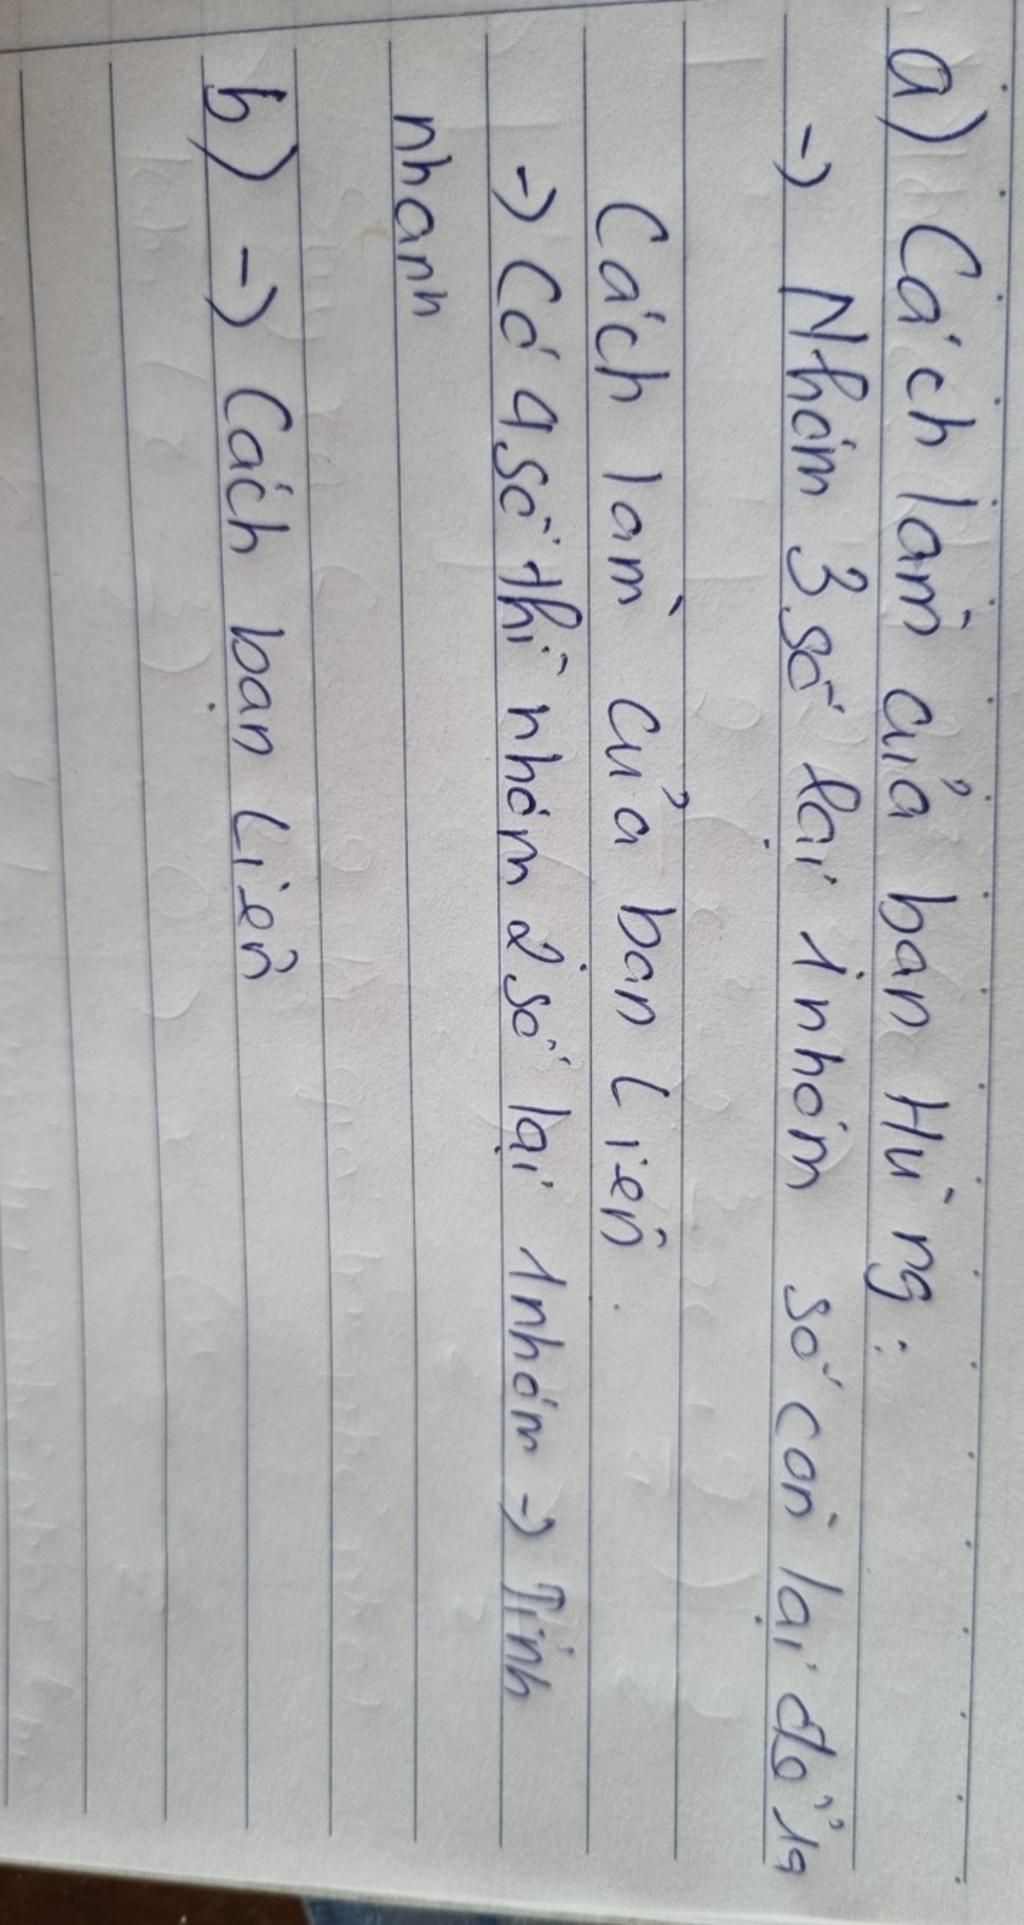 a) Cách làm của bạn Hùng:
→ Nhóm 3 số lại 1 nhóm số còn lại để 19
Cách làm của bạn Liên.
→ Có 4 số thì nhóm 2 số lại 1 nhóm → Tính
nhanh
b) → Cách bạn Liên